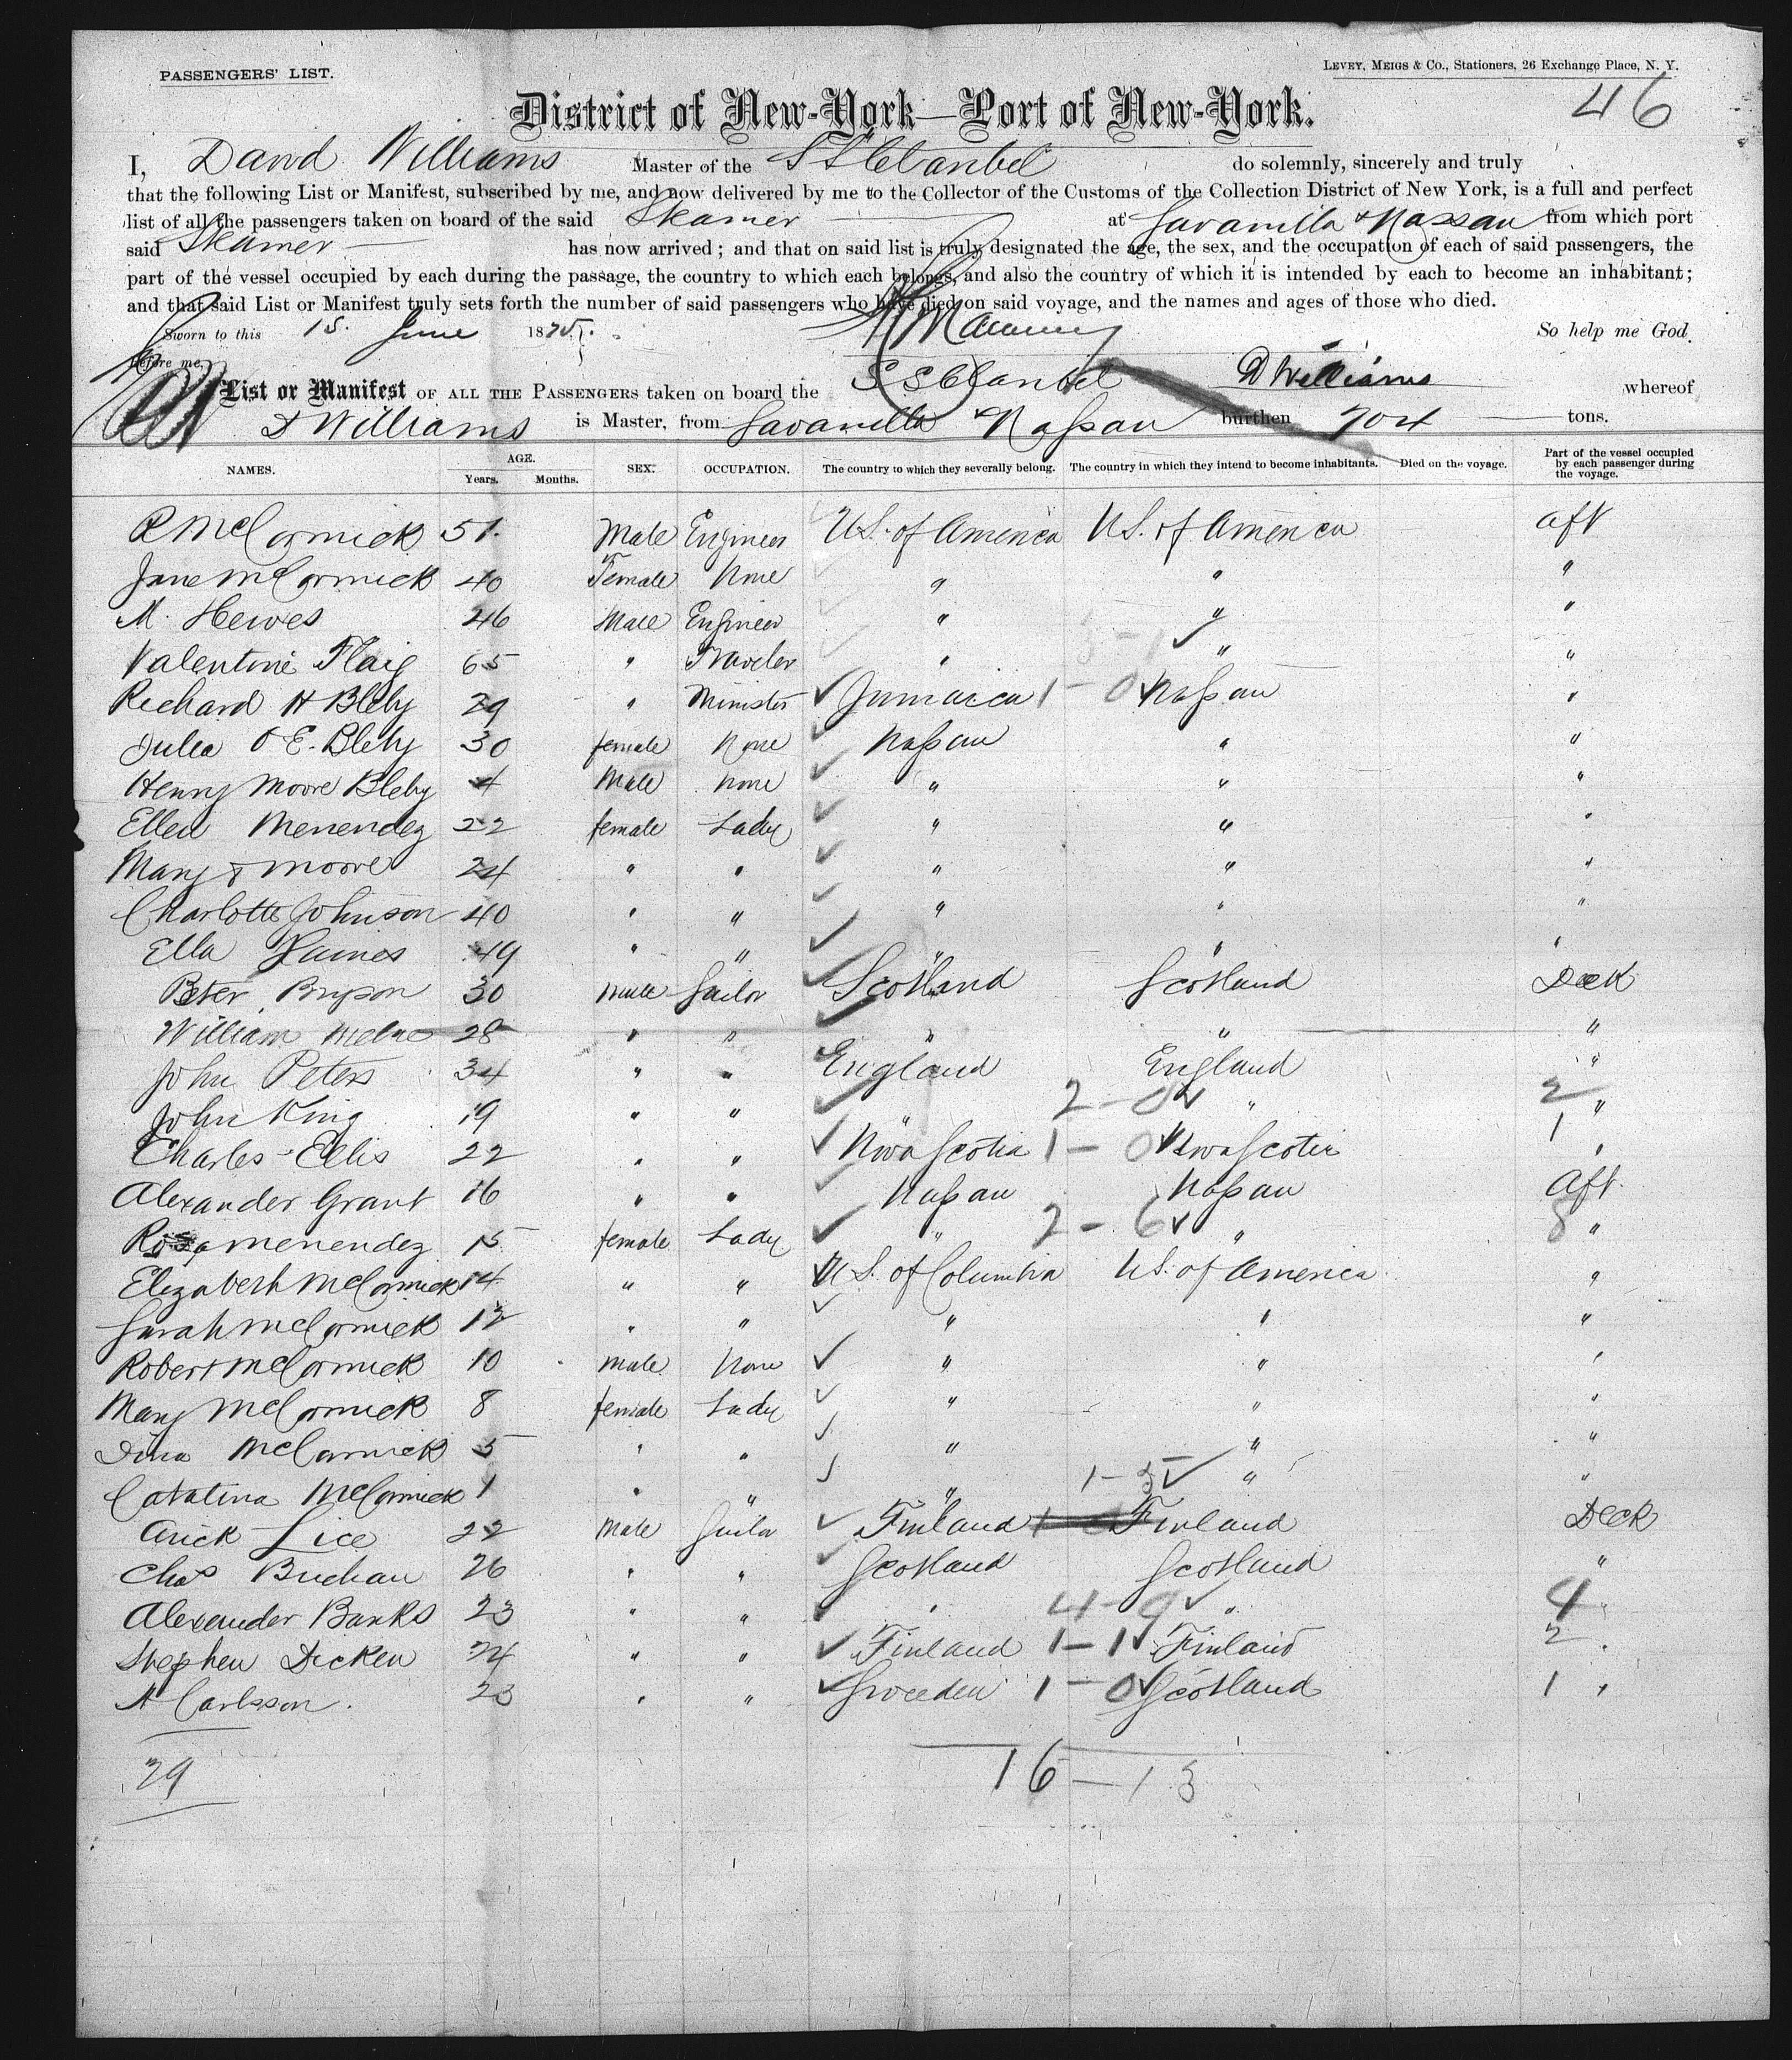 PASSENGERS' LIST.
LEVEY, MEIGS & CO., Stationers, 26 Exchange Place, N. Y.
46
District of New-York—Port of New-York.
I, David Williams Master of the SS Claribel do solemnly, sincerely and truly
that the following List or Manifest, subscribed by me, and now delivered by me to the Collector of the Customs of the Collection District of New York, is a full and perfect
list of all the passengers taken on board of the said Steamer at Savanilla & Nassau from which port
said Steamer has now arrived; and that on said list is truly designated the age, the sex, and the occupation of each of said passengers, the
part of the vessel occupied by each during the passage, the country to which each belongs, and also the country of which it is intended by each to become an inhabitant;
and that said List or Manifest truly sets forth the number of said passengers who have died on said voyage, and the names and ages of those who died.
Sworn to this 15. June 1875. So help me God.
Before me,
D Williams
List or Manifest OF ALL THE PASSENGERS taken on board the SS Claribel whereof
D Williams is Master, from Savanilla & Nassau burthen 704 tons.
NAMES. AGE. Years. Months. SEX. OCCUPATION. The country to which they severally belong. The country in which they intend to become inhabitants. Died on the voyage. Part of the vessel occupied by each passenger during the voyage.
R McCormick 51. Male Engineer U.S. of America U.S. of America aft
Jane McCormick 40 Female None " " "
M. Hewes 46 Male Engineer " " "
Valentine Flaig 65 " Traveler " " "
Richard H Bleby 29 " Minister Jamaica 1-0 Nassau "
Julia O E. Bleby 30 female None Nassau " "
Henry Moore Bleby 4 Male None " " "
Ellen Menendez 22 female Lady " " "
Mary Moore 24 " " " " "
Charlotte Johnson 40 " " " " "
Ella 49 " " " " "
Peter Bryson 30 male Sailor Scotland Scotland Deck
William 28 " " " " "
John Peters 34 " " England England "
John King 19 " " " 2-0 " 2 "
Charles Ellis 22 " " Nova Scotia 1-0 Nova Scotia 1 "
Alexander Grant 16 " " Nassau Nassau Aft.
Rosa Menendez 15 female Lady " 2-6 " 8 "
Elizabeth McCormick 14 " " U.S. of Columbia U.S. of America "
Sarah McCormick 12 " " " " "
Robert McCormick 10 male None " " "
Mary McCormick 8 female Lady " " "
McCormick 5 " " " " "
Catalina McCormick 1 " " " 1-5 " "
Arick Lice 22 Male Sailor Finland 1 Finland Deck
Chas Buchan 26 " " Scotland Scotland "
Alexander Banks 23 " " " 4-9 " 4 "
Stephen Dicken 24 " " Finland 1-1 Finland 2 "
A Carlsson. 23 " " Sweeden 1-0 Scotland 1 "
29 16-13